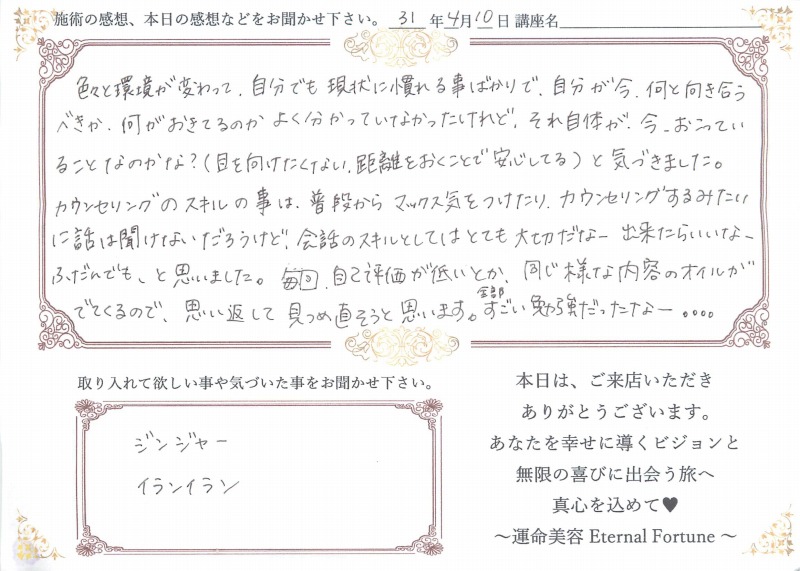 施術の感想、本日の感想などをお聞かせ下さい。 31 年 4月 10 日 講座名
色々と環境が変わって、自分でも現状に慣れる事ばかりで、自分が今、何と向き合う
べきか、何がおきてるのか よく分かっていなかったけれど、それ自体が、今、おこってい
ることなのかな?(目を向けたくない、距離をおくことで安心してる)と気づきました。
カウンセリングのスキルの事は、普段から マックス気をつけたり、カウンセリングするみたい
に話は聞けないだろうけど、会話のスキルとしてはとても大切だなー 出来たらいいなー
ふだんでも、と思いました。毎回、自己評価が低いとか、同じ様な内容のオイルが
でてくるので、思い返して 見つめ直そうと思います。全部すごい勉強だったなー....
取り入れて欲しい事や気づいた事をお聞かせ下さい。
ジンジャー
イランイラン
本日は、ご来店いただき
ありがとうございます。
あなたを幸せに導くビジョンと
無限の喜びに出会う旅へ
真心を込めて♥
～運命美容 Eternal Fortune ～